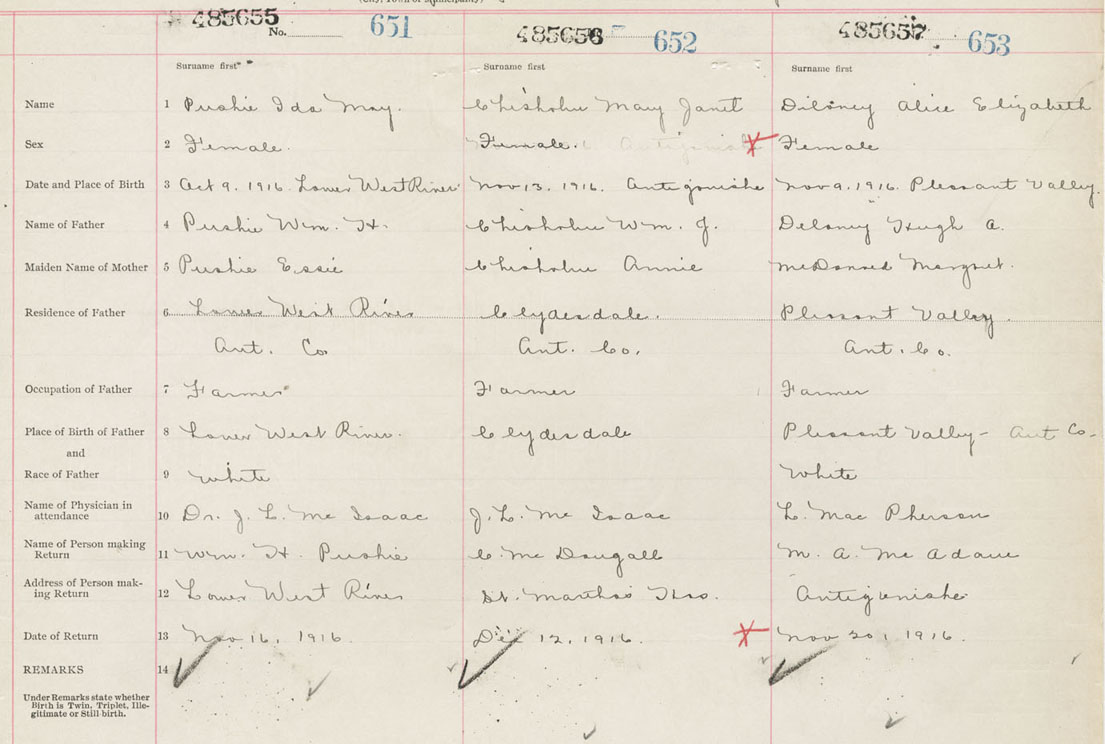 485655 485656 485657
No. 651 652 653
Surname first Surname first Surname first
Name 1 Pushie Ida May. Chisholm May Janet Delaney Alice Elizabeth
Sex 2 Female. Female. Female
Date and Place of Birth 3 Oct 9, 1916. Lower West River Nov 13, 1916. Antigonishe Nov 9, 1916. Pleasant Valley.
Name of Father 4 Pushie Wm. H. Chisholm Wm. J. Delaney Hugh A.
Maiden Name of Mother 5 Pushie Essie Chisholm Annie Margret.
Residence of Father 6 Lower West River Clydesdale. Pleasant Valley.
Ant. Co Ant. Co. Ant. Co.
Occupation of Father 7 Farmer Farmer Farmer
Place of Birth of Father 8 Lower West River. Clydesdale Pleasant Valley - Ant Co.
and
Race of Father 9 White White
Name of Physician in
attendance 10 Dr. J. L. Mc Isaac J. L. Mc Isaac L. Mac Pherson
Name of Person making
Return 11 Wm. H. Pushie C. Mc Dougall M. A. Mc Adam
Address of Person mak-
ing Return 12 Lower West River St. Martha's Hso. Antigonishe
Date of Return 13 Nov 16, 1916. Dec 12, 1916. Nov 20, 1916.
REMARKS 14
Under Remarks state whether
Birth is Twin, Triplet, Ille-
gitimate or Still-birth.